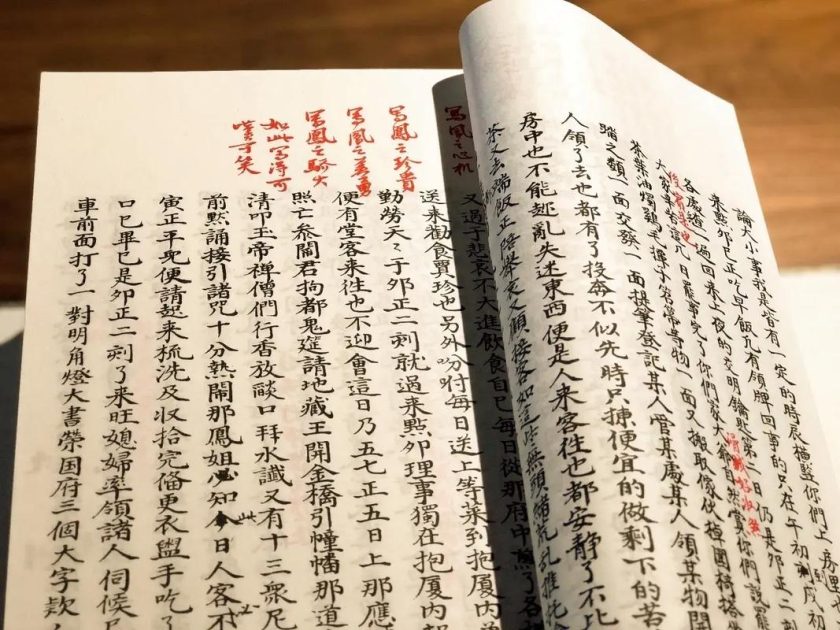 論大小事我是皆有一定的時辰橫豎你們上房
來點卯巳正吃早飯凢有領牌回事的只在午初刻戌初
各處查一遍回來上夜的交明鑰匙第二日仍是卯正二
大家辛苦這几日罷事完了你們家大爺自然賞你們說罷
滑賊好收煞
茶葉油燭雞毛撣子笤帚等物一面又搬取傢伙棹圍椅搭
踏之類一面交發一面提筆登記某人管某處某人領某物開
人領了去也都有了投奔不似先時只揀便宜的做剩下的苦
房中也不能趂亂失迷東西便是人来客徃也都安靜了不比
茶又去端飯正陪舉哀又顧接客如這些無頭緒荒乱推托
寫鳳之心机
又過于悲哀不大進飲食自己每日從那府中煎了各
送来勸食賈珍也另外分咐每日送上等菜到抱厦内
寫鳳之珍貴
勤勞天〻于卯正二刻就過来點卯理事獨在抱厦内
寫鳳之英勇
便有堂客来徃也不迎會這日乃五七正五日上那應
寫鳳之驕大
照亡叅閻君拘都鬼筵請地藏王開金橋引幢幡那道
如此寫得可
嘆可笑
清叩玉帝禅僧們行香放燄口拜水讖又有十三衆尼
前黙誦接引諸咒十分熱鬧那鳳姐必知今日人客不
寅正平兒便請起来梳洗及收拾完俻更衣盥手吃了
口巳畢已是夘正二刻了来旺媳婦率領諸人伺候
車前面打了一對明角燈大書榮国府三個大字欵